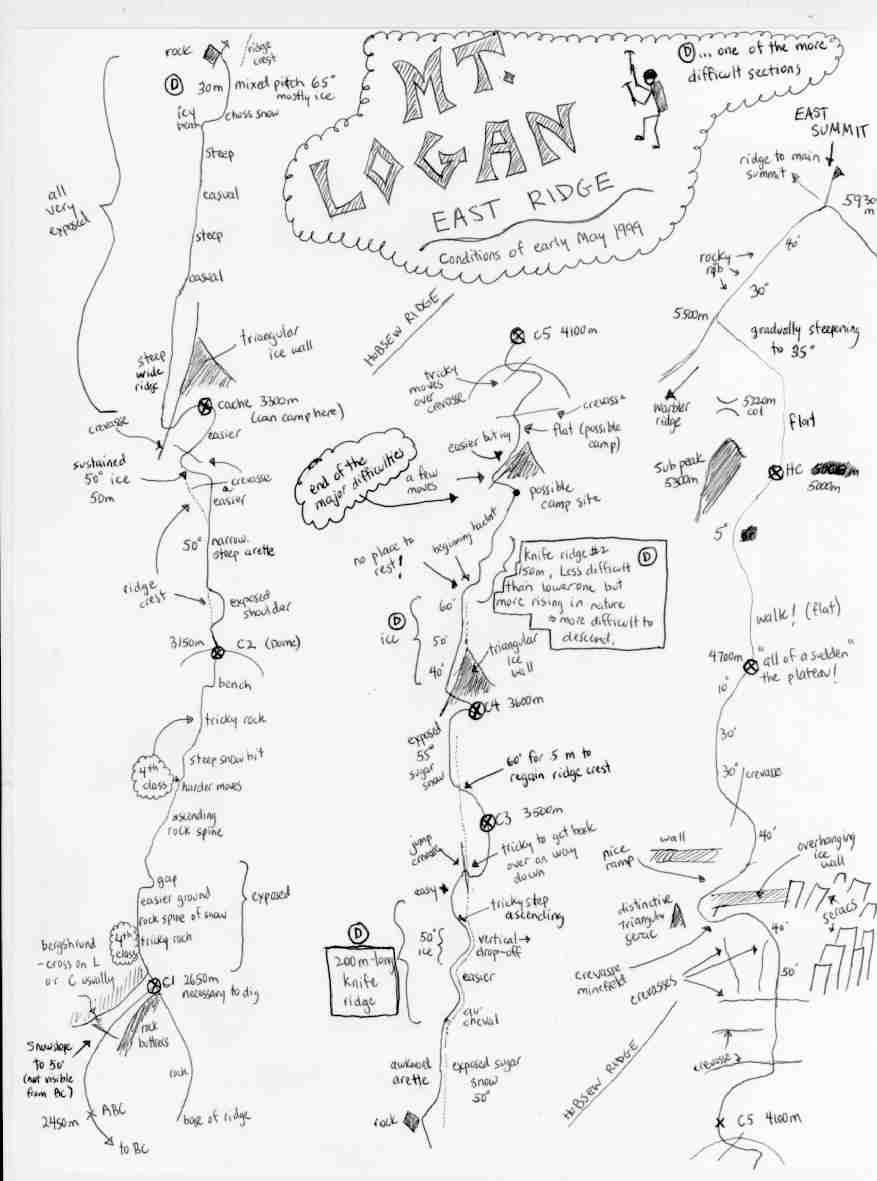 MT.
LOGAN
EAST RIDGE
Conditions of early May 1999
D ... one of the more
difficult sections
rock
ridge
crest
D 30m mixed pitch 65°
mostly ice
icy
chossy snow
steep
casual
steep
casual
all
very
exposed
triangular
ice wall
steep
wide
ridge
cache 3300m
(can camp here)
crevasse
easier
sustained
50° ice
50m
crevasse
easier
50°
narrow
steep arette
ridge
crest
exposed
shoulder
3150m
C2 (Dome)
bench
tricky rock
steep snow bit
4th
class
harder moves
ascending
rock spine
gap
easier ground
rock spine of snow
4th
class
tricky rock
exposed
bergshrund
-cross on L
or C usually
C1 2650m
necessary to dig
rock
buttress
Snowslope
to 50°
(not visible
from BC)
rock
ABC
2450m
base of ridge
to BC
HUBSEW RIDGE
C5 4100m
tricky
moves
over
crevasse
crevasse
flat (possible
camp)
easier but icy
end of the
major difficulties
a few
moves
possible
camp site
beginning
no place to
rest!
knife ridge #2
150m. Less difficult
than lower one but
more rising in nature
⇒ more difficult to
descend.
D
60°
D
ice
50°
40°
triangular
ice
wall
C4 3600m
exposed
55°
sugar
snow
60° for 5 m to
regain ridge crest
C3 3500m
jump
crevasse
tricky to get back
over on way
down
easy
tricky step
ascending
D
200m-long
knife
ridge
50°
ice
vertical
drop-off
easier
au
cheval
awkward
arette
exposed sugar
snow
50°
rock
EAST
SUMMIT
ridge to main
summit
5930
m
40°
rocky
rib
30°
5500m
gradually steepening
to 35°
warbler
ridge
5220m
col
flat
Sub peak
5300m
HC
5000m
5°
walk! (flat)
4700m
"all of a sudden"
the plateau!
10°
30°
30°
crevasse
40°
wall
nice
ramp
overhanging
ice
wall
seracs
distinctive
triangular
serac
40°
50°
crevasse
minefield
crevasses
crevasses
HUBSEW RIDGE
C5 4100m